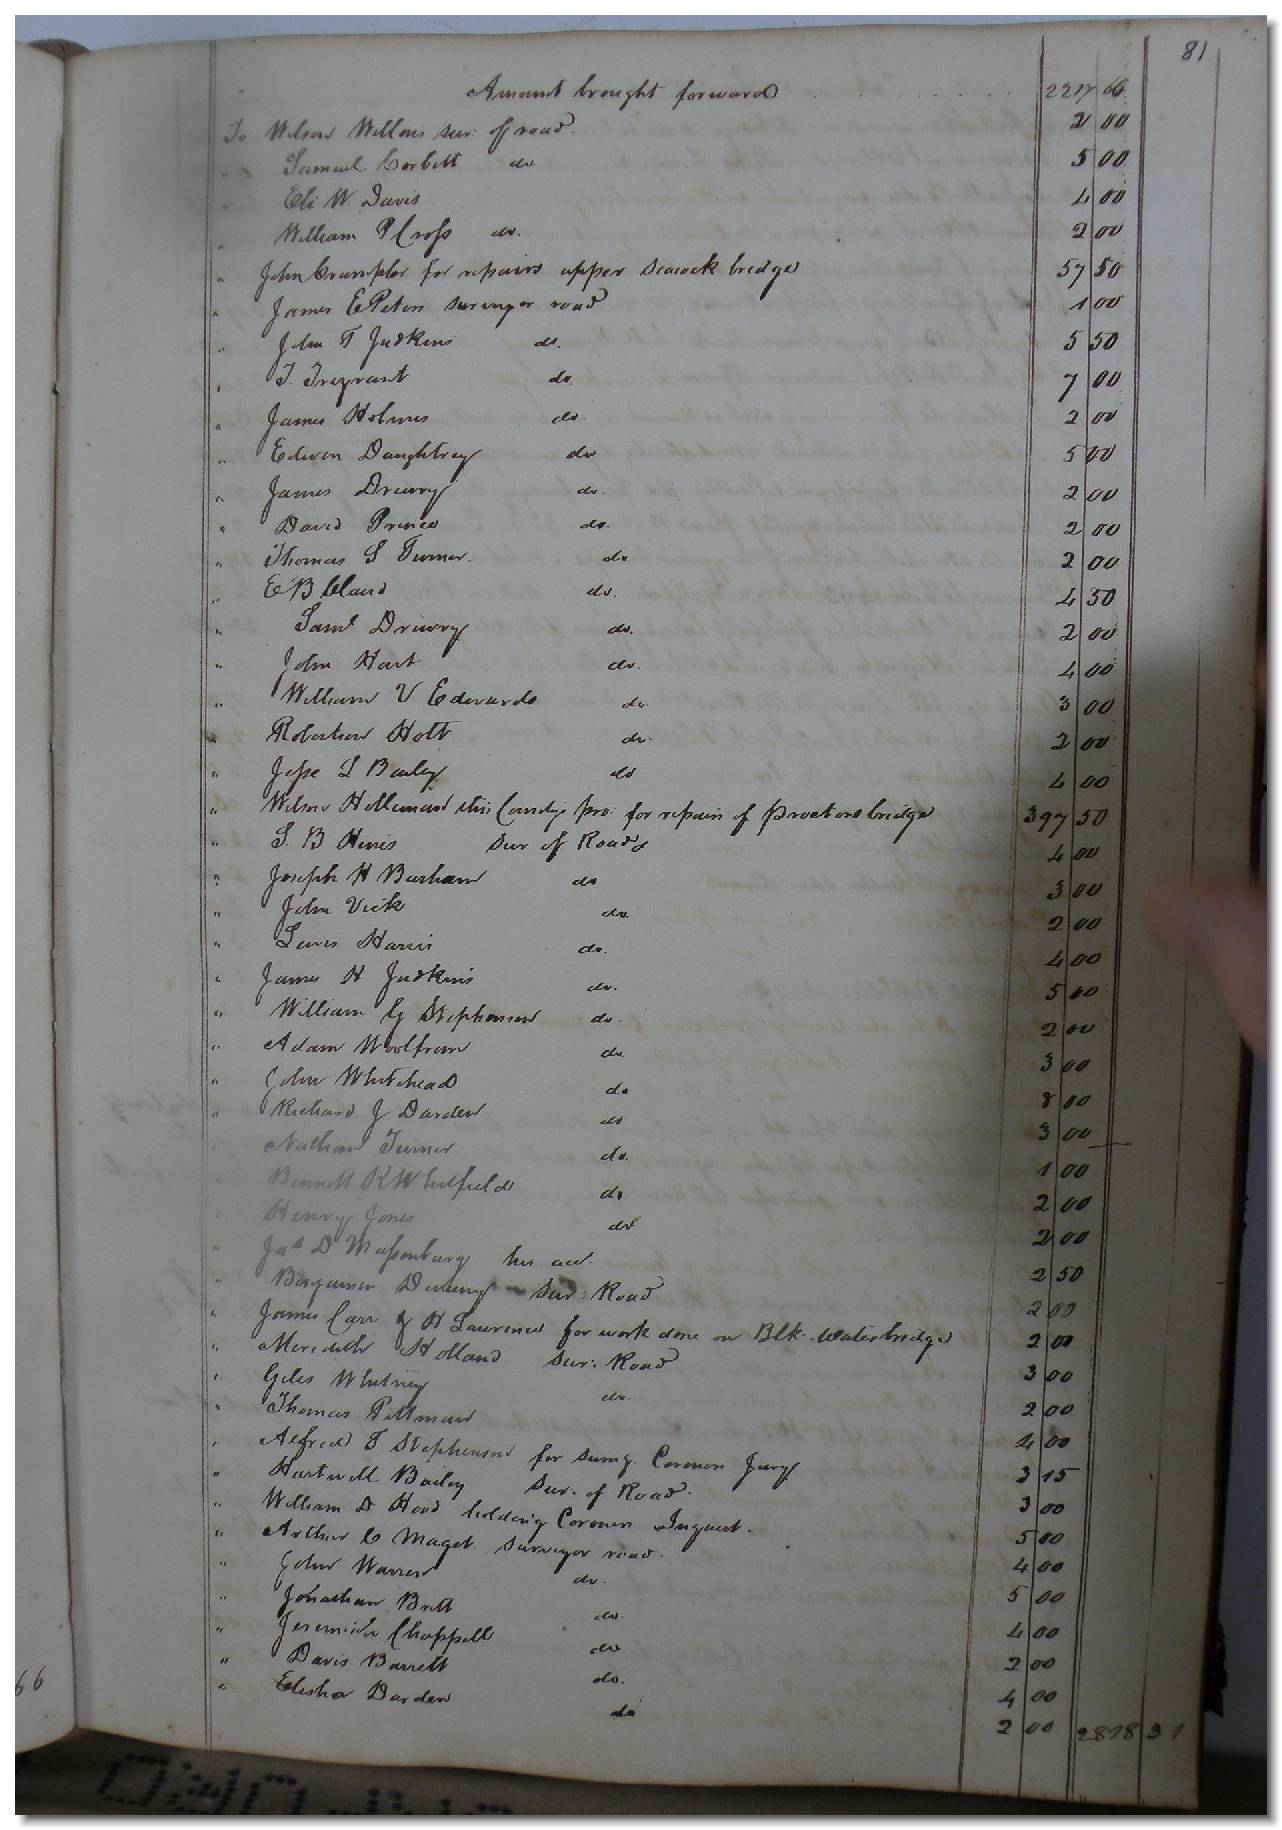 81
Amount brought forward 2217 66
To Wilson Willows sur: of road. 2 00
" Samuel Corbitt do 5 00
Eli W Davis 4 00
" William P Cross do. 2 00
" John Crumpler for repairs upper Seacock bridge 57 50
" James E Peters surveyor road 1 00
" John T Judkins do. 5 50
" T. Trezvant do. 7 00
" James Holmes do. 2 00
" Edwin Daughtrey do 5 00
" James Drewry do. 2 00
" David Prince do. 2 00
" Thomas S Turner. do 2 00
" E B Claud do. 4 50
" Saml Drewry do. 2 00
" John Hart do. 4 00
" William V Edwards do 3 00
" Robertson Holt do. 2 00
" Jesse L Bailey do 4 00
" Wilson Holleman this County's pro: for repairs of Proctors bridge 397 50
" S. B Hines sur of Roads 4 00
" Joseph H Barham do 3 00
" John Vick do. 2 00
" Lewis Harris do. 4 00
" James H Judkins do. 5 00
" William G Stephenson do. 2 00
" Adam Woolfrom do. 3 00
" John Whitehead do 8 00
" Richard J Darden do 3 00
" Nathan Turner do. 1 00
" Bennett K Whitfield do 2 00
" Henry Jones do 2 00
" Jas D Massenburg his acc. 2 50
" Benjamin Drewry Sur: Road 2 00
" James Carr & H Lawrence for work done on Blk. Waterbridge 2 00
" Meredith Holland Sur: Road 3 00
" Giles Whitney do. 2 00
" Thomas Pittman 4 00
" Alfred T Stephenson for sumg. Coroners Jury 3 15
" Hartwell Bailey Sur. of Road. 3 00
" William D Hood holding Coroners Inquest. 5 00
" Arthur C Maget surveyor road. 4 00
" John Warren do. 5 00
" Jonathan Britt do. 4 00
" Jeremiah Chappell do 2 00
" Davis Barrett do. 4 00
" Elisha Darden do 2 00 2878 31
66